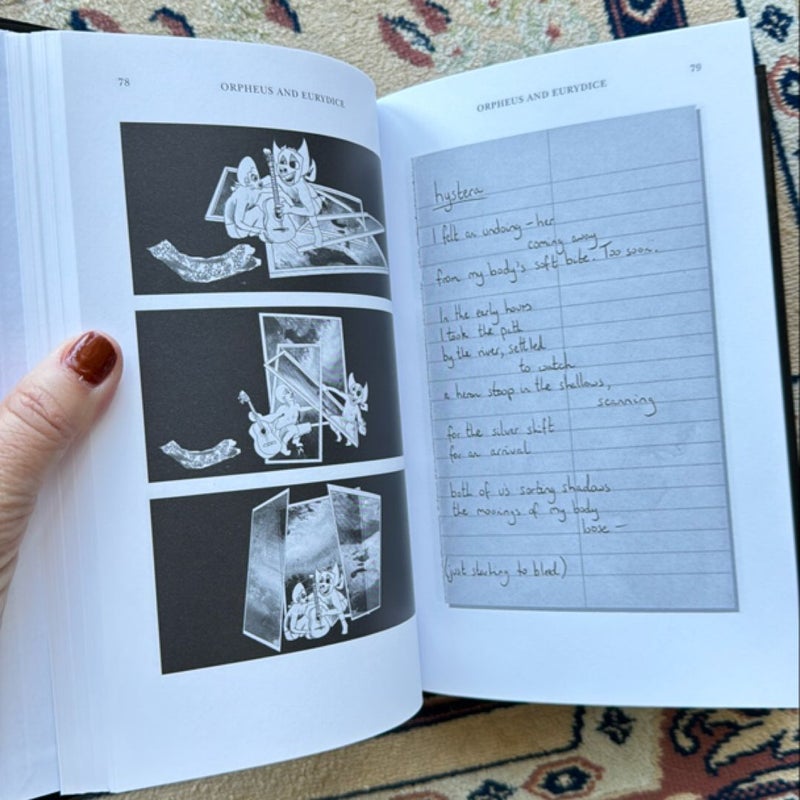 78
ORPHEUS AND EURYDICE
ORPHEUS AND EURYDICE
79
hystera
I felt an undoing – her
coming away
from my body's soft bite. Too soon.
In the early hours
I took the path
by the river, settled
to watch
a heron stoop in the shallows,
scanning
for the silver shift
for an arrival
both of us sorting shadows
the moorings of my body
loose –
(just starting to bleed)